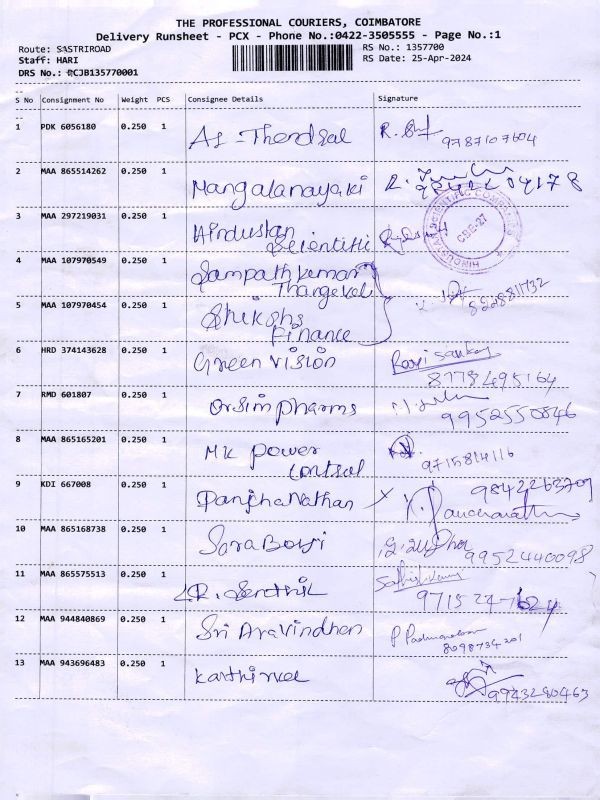 THE PROFESSIONAL COURIERS, COIMBATORE
Delivery Runsheet - PCX - Phone No.:0422-3505555 - Page No.:1
Route: SASTRIROAD RS No.: 1357700
Staff: HARI RS Date: 25-Apr-2024
DRS No.: RCJB135770001
S No Consignment No Weight PCS Consignee Details Signature
1 PDK 6056180 0.250 1 9787107604
2 MAA 865514262 0.250 1 Mangalanayaki
3 MAA 297219031 0.250 1 Hindustan
Scientific
CBE-27
4 MAA 107970549 0.250 1 Sampathkumar
Thangavel
5 MAA 107970454 0.250 1 Shiksha
Finance
6 HRD 374143628 0.250 1 Green vision Ravi sankar
8778495164
7 RMD 601807 0.250 1 Orsim pharms
9952550846
8 MAA 865165201 0.250 1 MK Power
Control
9715814116
9 KDI 667008 0.250 1 Panchanathan
10 MAA 865168738 0.250 1 9952440098
11 MAA 865575513 0.250 1 R. Senthil
12 MAA 944840869 0.250 1 Sri Aravindhan
8098734201
13 MAA 943696483 0.250 1 Karthivel
9943280463